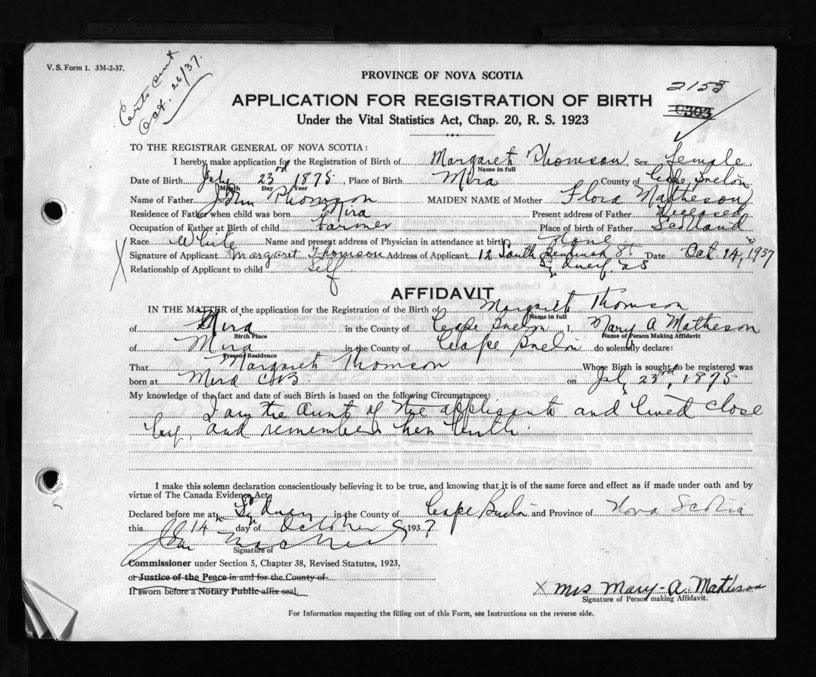 V. S. Form 1. 3M-2-37.
Certs sent
Oct. 26/37.
PROVINCE OF NOVA SCOTIA
2153
APPLICATION FOR REGISTRATION OF BIRTH
Under the Vital Statistics Act, Chap. 20, R. S. 1923
TO THE REGISTRAR GENERAL OF NOVA SCOTIA:
I hereby make application for the Registration of Birth of Margaret Thomson, Sex female
Name in full
Date of Birth July 23rd 1875, Place of Birth Mira County of Cape Breton
Month Day Year
Name of Father John Thomson MAIDEN NAME of Mother Flora Matheson
Residence of Father when child was born Mira Present address of Father Deceased
Occupation of Father at Birth of child farmer Place of birth of Father Scotland
Race White Name and present address of Physician in attendance at birth None
Signature of Applicant Margaret Thomson Address of Applicant 12 South St Date Oct. 14, 1937
Relationship of Applicant to child Self
AFFIDAVIT
IN THE MATTER of the application for the Registration of the Birth of Margaret Thomson
Name in full
of Mira in the County of Cape Breton I, Mary A Matheson
Birth Place Name of Person Making Affidavit
of Mira in the County of Cape Breton do solemnly declare:
Present Residence
That Margaret Thomson Whose Birth is sought to be registered was
born at Mira C.B. on July 23rd, 1875
My knowledge of the fact and date of such Birth is based on the following Circumstances:
I am the Aunt of the applicant and lived close
by, and remember her birth.
I make this solemn declaration conscientiously believing it to be true, and knowing that it is of the same force and effect as if made under oath and by
virtue of The Canada Evidence Act.
Declared before me at Sydney in the County of Cape Breton and Province of Nova Scotia
this 14th day of October 1937
Signature of
Commissioner under Section 5, Chapter 38, Revised Statutes, 1923,
or Justice of the Peace in and for the County of
If sworn before a Notary Public affix seal.
x Mrs Mary-A. Matheson
Signature of Person making Affidavit.
For Information respecting the filling out of this Form, see Instructions on the reverse side.